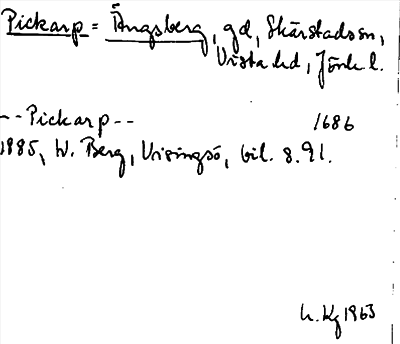 Pickarp = Ängsberg, gd, Skärstads sn,
Vista hd, Jönk l.
--Pickarp-- 1686
1885, W. Berg, Visingsö, bil. 8.91.
h. Kg 1963